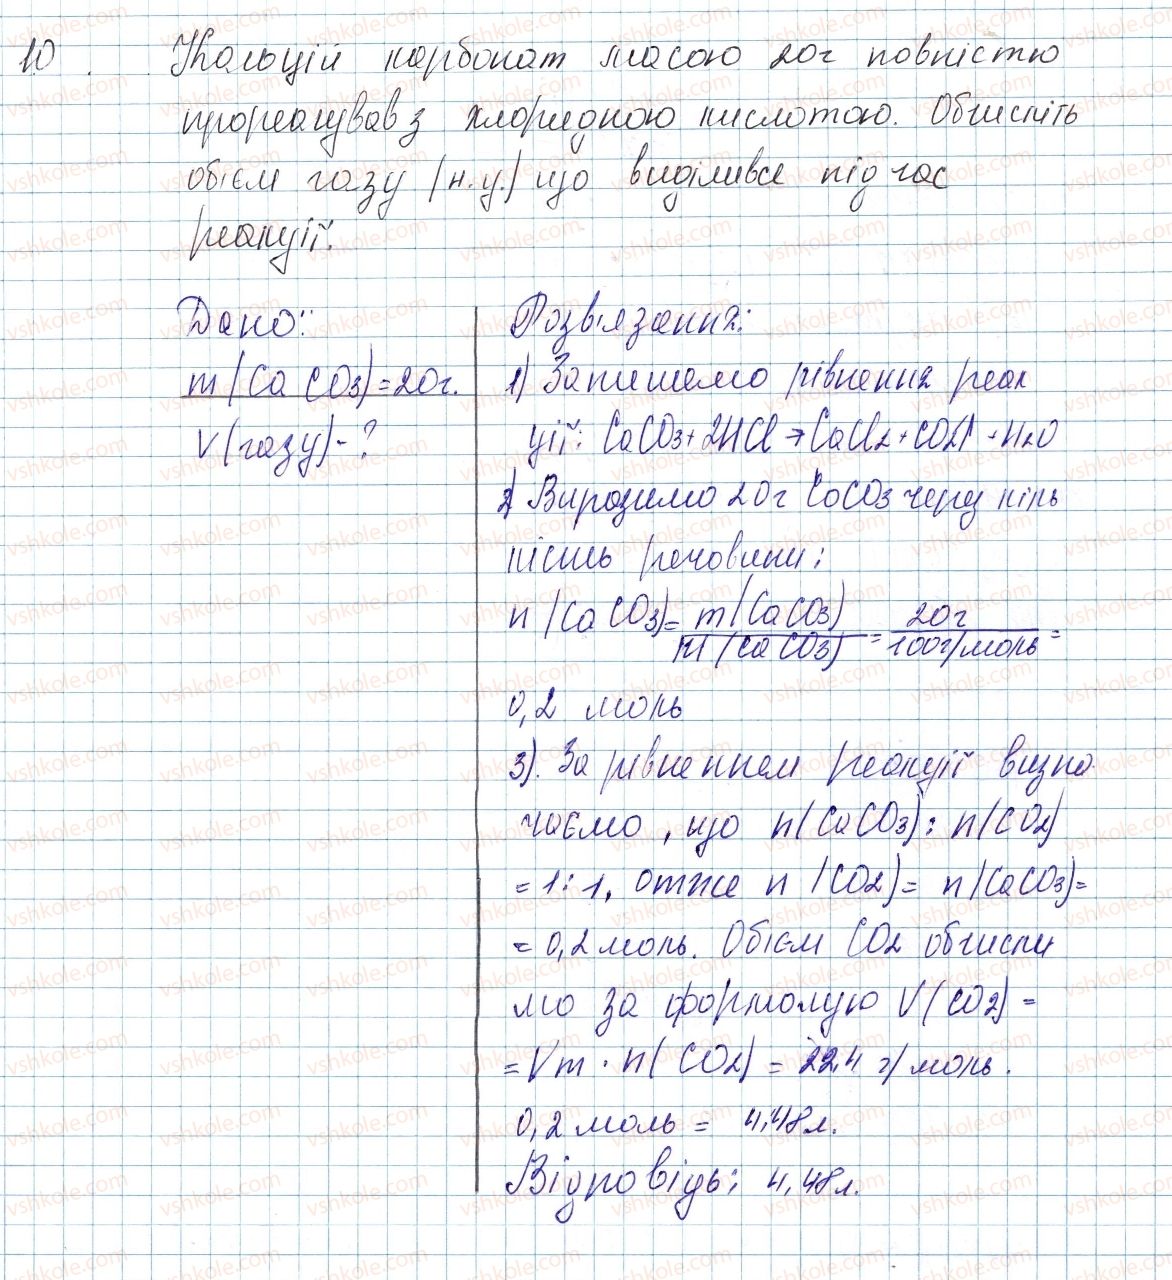 10. Кальцій карбонат масою 20г повністю
прореагував з хлоридною кислотою. Обчисліть
об'єм газу (н.у.) що виділився під час
реакції.
Дано:
m(CaCO3)=20г.
V(газу)-?
Розв'язання:
1) Запишемо рівняння реак
ції: CaCO3+2HCl→CaCl2+CO2↑+H2O
2) Виразимо 20г CaCO3 через кіль
кість речовини:
n(CaCO3)= m(CaCO3) / M(CaCO3) = 20г / 100г/моль =
0,2 моль
3). За рівнянням реакції визна
чаємо, що n(CaCO3): n(CO2)
=1:1, отже n(CO2)= n(CaCO3)=
=0,2 моль. Об'єм CO2 обчисли
мо за формолую V(CO2)=
=Vm·n(CO2)= 22,4 г/моль.
0,2 моль = 4,48л.
Відповідь: 4,48л.
vshkole.com